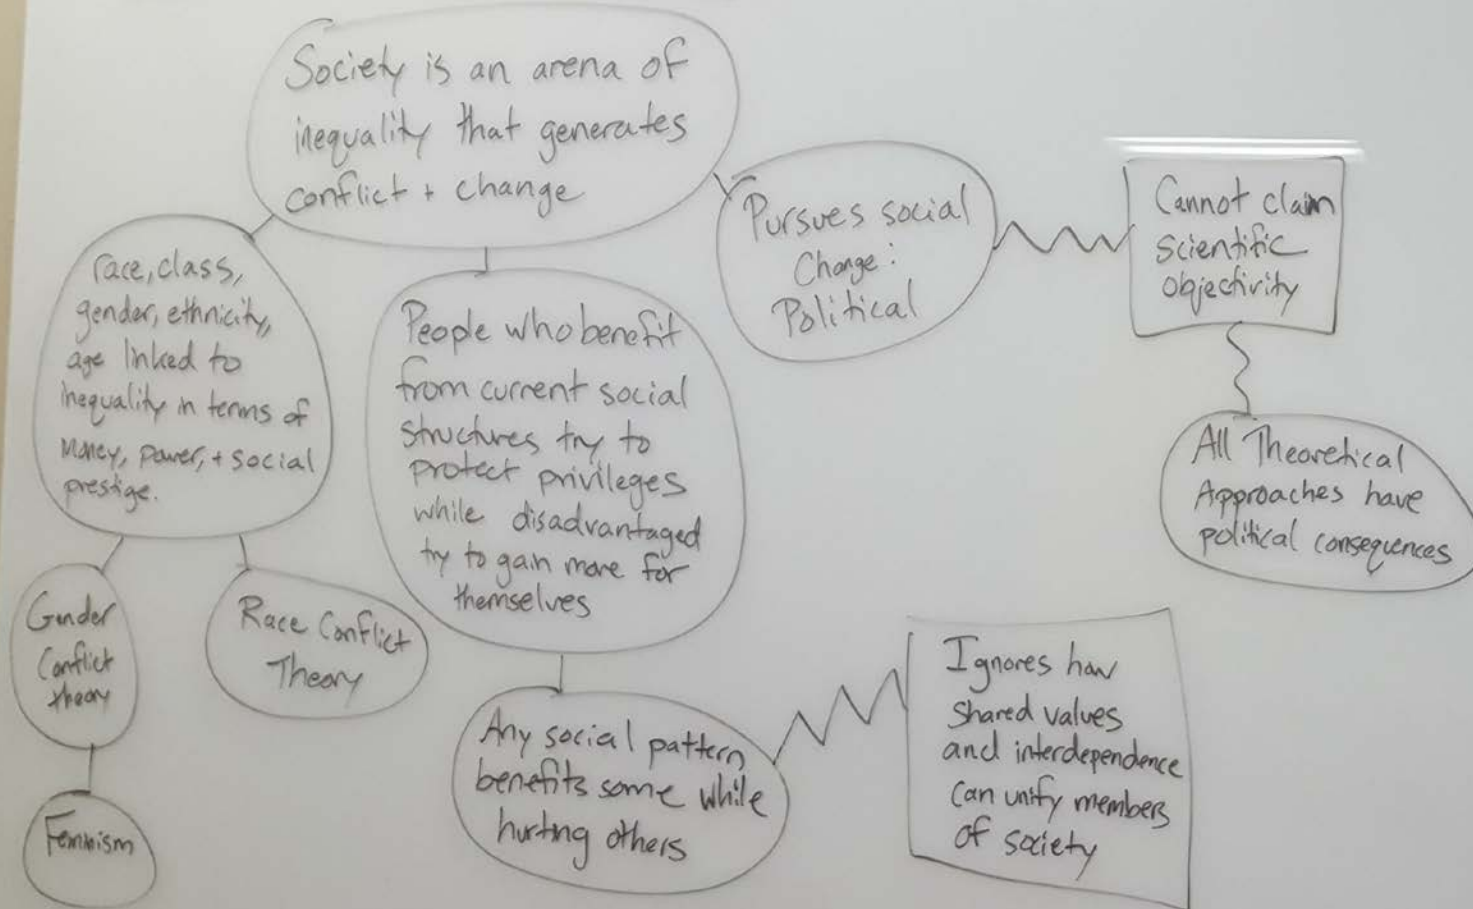 Society is an arena of
inequality that generates
conflict + change
race, class,
gender, ethnicity,
age linked to
inequality in terms of
Money, power, + social
prestige.
Gender
Conflict
theory
Feminism
Race Conflict
Theory
People who benefit
from current social
structures try to
protect privileges
while disadvantaged
try to gain more for
themselves
Any social pattern
benefits some while
hurting others
Ignores how
shared values
and interdependence
can unify members
of society
Pursues social
Change:
Political
Cannot claim
scientific
objectivity
All Theoretical
Approaches have
political consequences